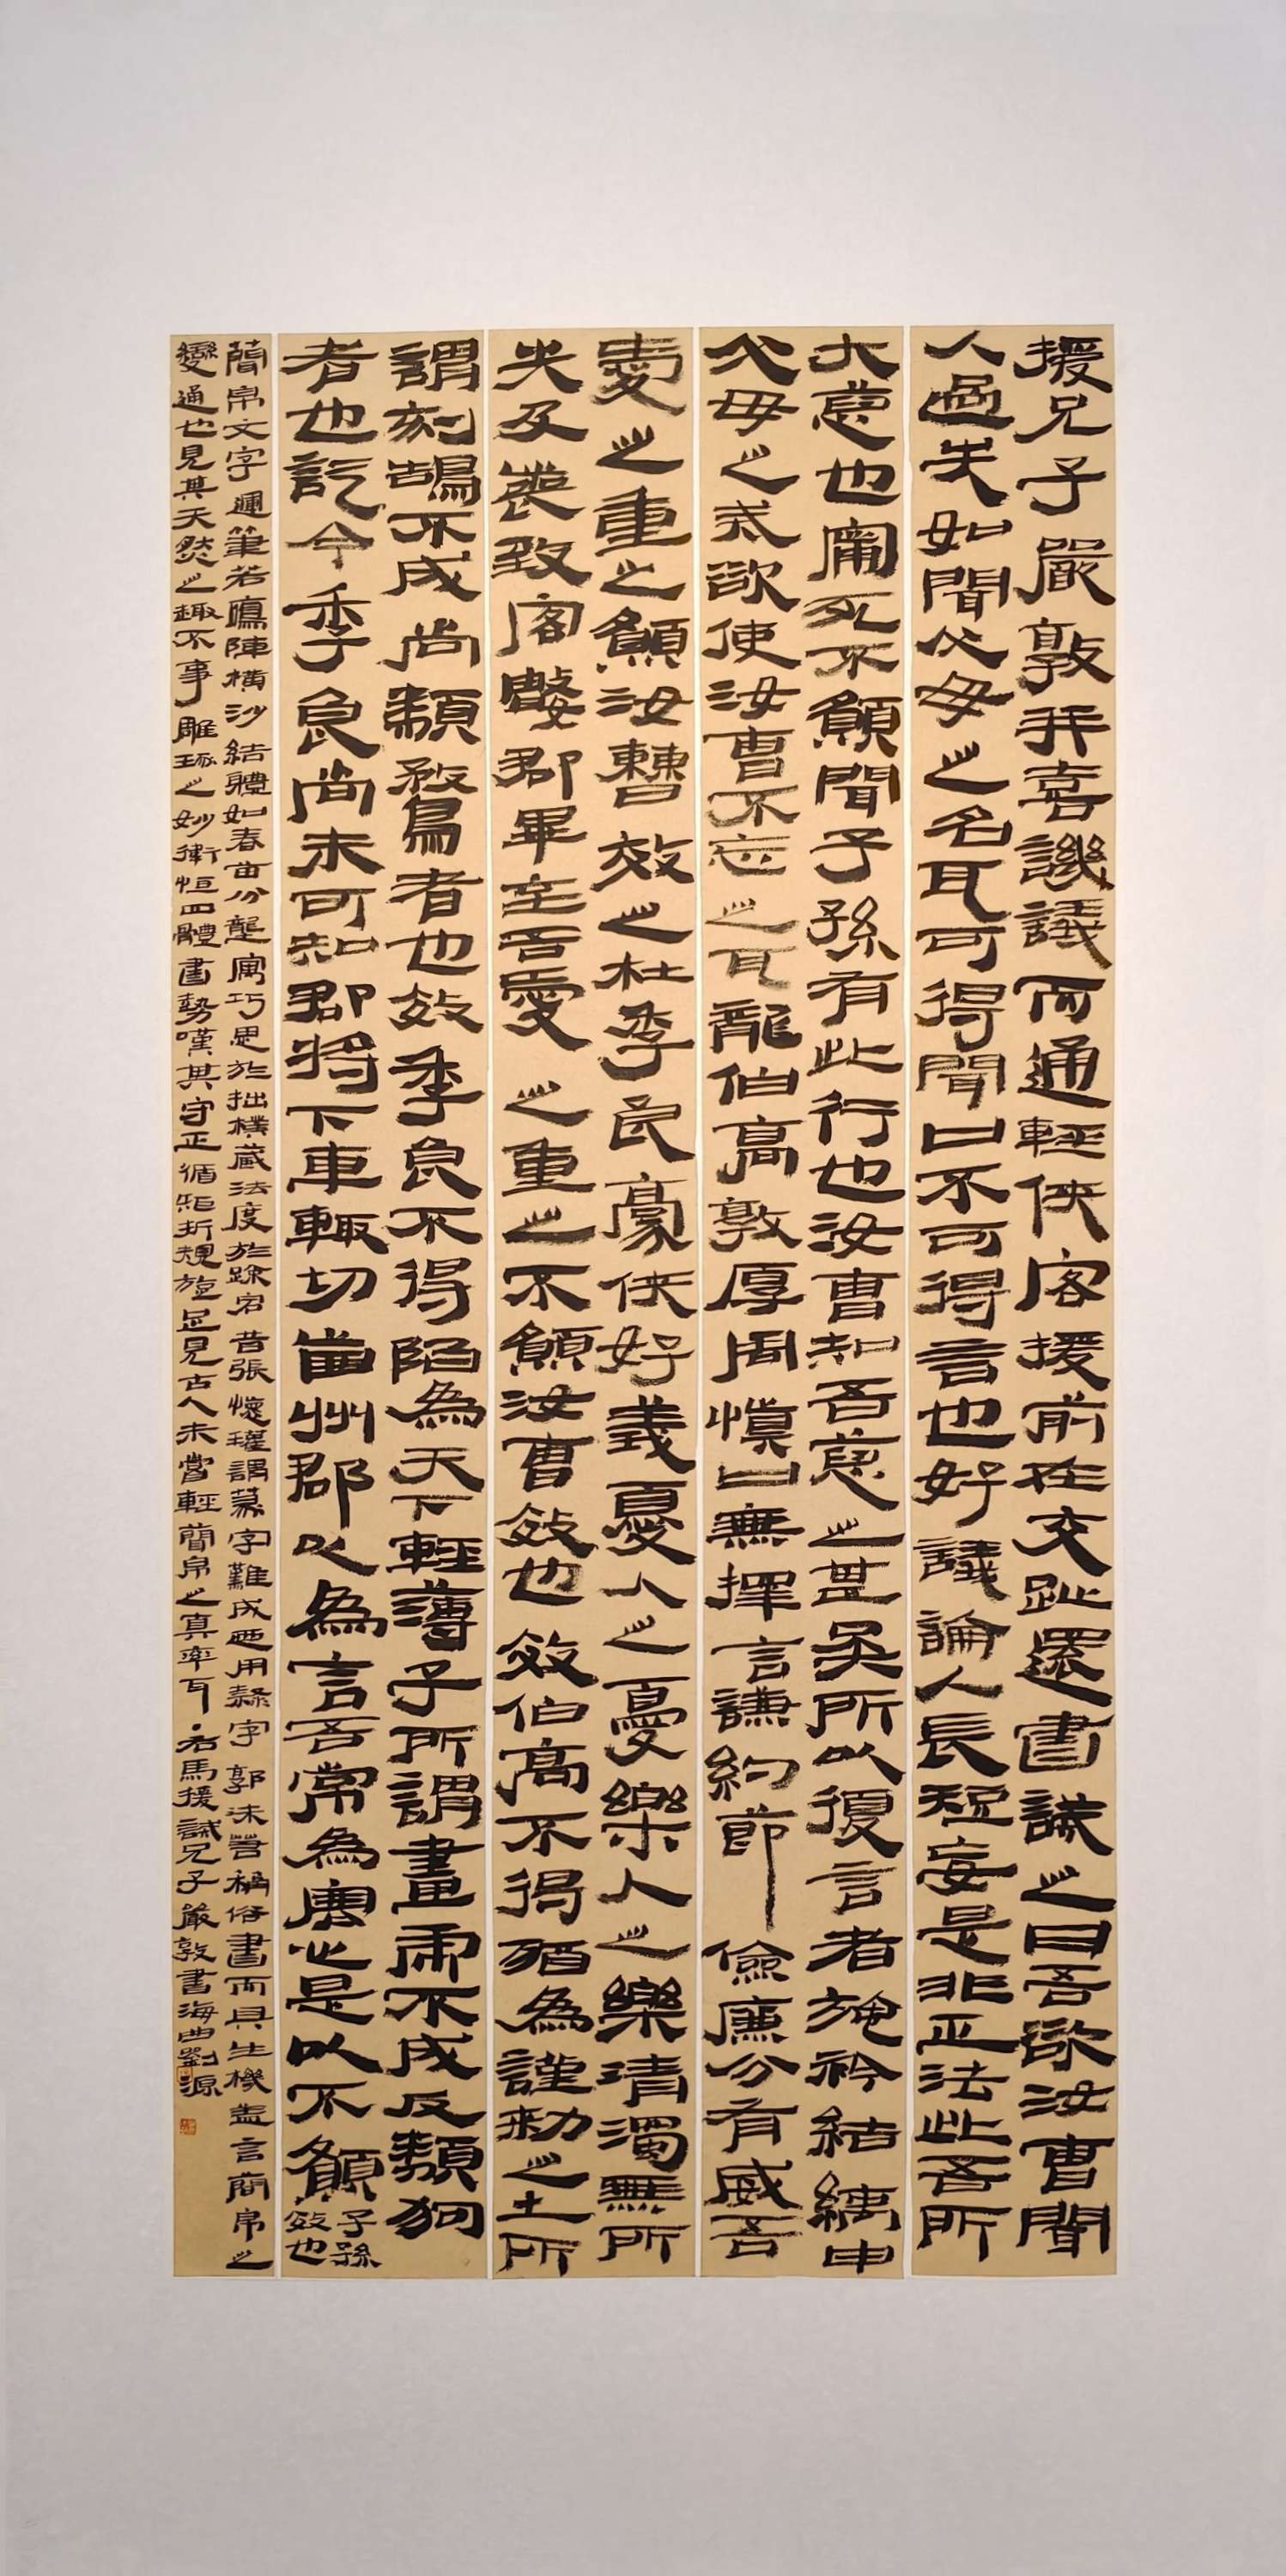 援兄子嚴敦并喜譏議而通輕俠客援前在交趾還書誡之曰吾欲汝曹聞
人過失如聞父母之名耳可得聞口不可得言也好議論人長短妄是非正法此吾所
大惡也寧死不願聞子孫有此行也汝曹知吾惡之甚矣所以復言者施衿結縭申
父母之戒欲使汝曹不忘之耳龍伯高敦厚周慎口無擇言謙約節儉廉公有威吾
愛之重之願汝曹效之杜季良豪俠好義憂人之憂樂人之樂清濁無所
失父喪致客數郡畢至吾愛之重之不願汝曹效也效伯高不得猶為謹敕之士所
謂刻鵠不成尚類鶩者也效季良不得陷為天下輕薄子所謂畫虎不成反類狗
者也訖今季良尚未可知郡將下車輒切齒州郡以為言吾常為寒心是以不願子孫效也
簡帛文字運筆若雁陣橫沙結體如春苗分壟寓巧思於拙樸藏法度於疎宕昔張懷瓘謂篆字難成西用隸字郭沫若稱俗書而具生機盖言簡帛之
變通也見其天然之趣不事雕琢之妙衛恒四體書勢嘆其守正循矩折規旋足見古人未嘗輕簡帛之真率耳右馬援誡兄子嚴敦書海曲劉源